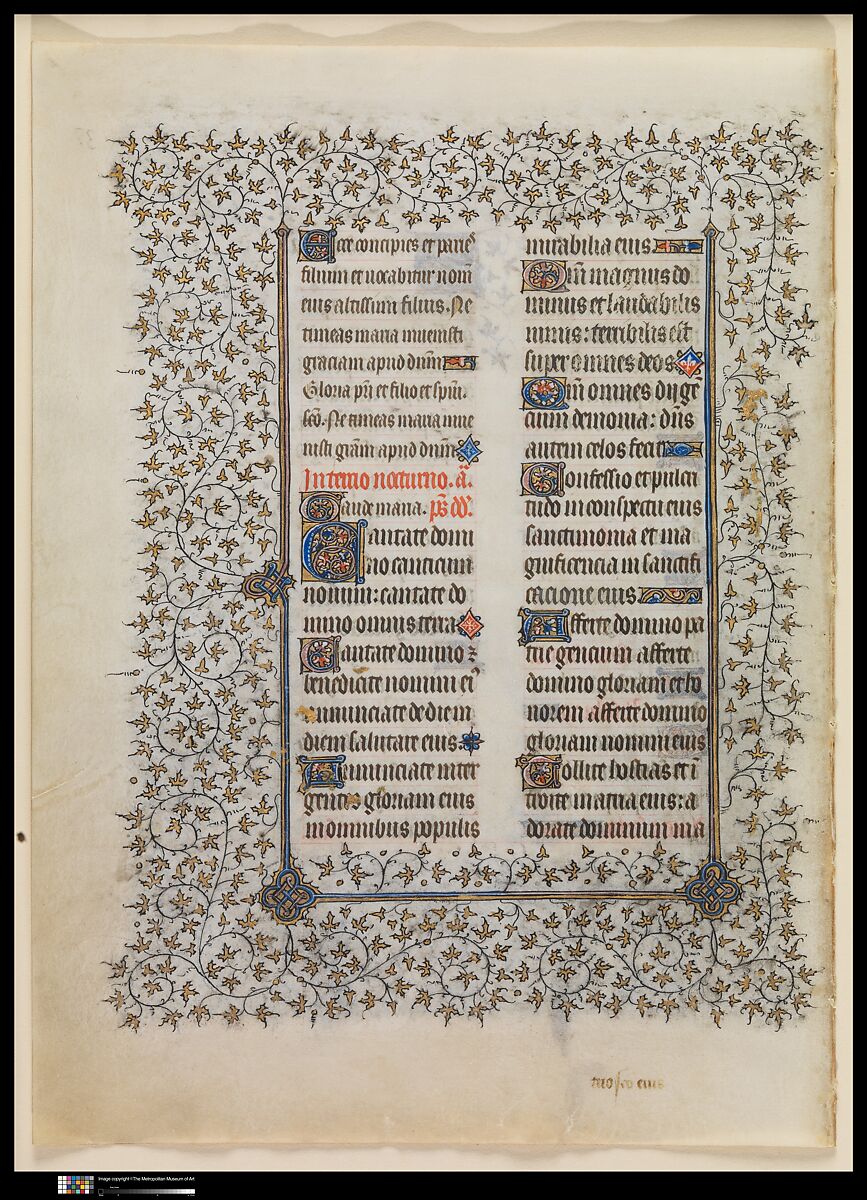 Ecce concipies et paries
filium et vocabitur nom̄
eius altissimi filius. Ne
timeas maria invenisti
graciam apud dūm
Gloria pr̄i et filio et spūi.
sc̄o. Ne timeas maria inve
nisti grām apud dūm
In tercio nocturno. ā.
Gaude maria. p̄s dd̄.
Cantate domi
no canticum
novum: cantate do
mino omnis terra
Cantate domino ⁊
benedicite nomini ei᷒
annunciate de die in
diem salutare eius.
Annunciate inter
gentes gloriam eius
in omnibus populis
mirabilia eius
Qm̄ magnus do
minus et laudabilis
nimis: terribilis est
super omnes deos
Qm̄ omnes dij gē
cium demonia: dn̄s
autem celos fecit
Confessio et pulcri
tudo in conspectu eius
sanctimonia et ma
gnificencia in sanctifi
cacione eius
Afferte domino pa
trie gencium afferte
domino gloriam et ho
norem afferte domino
gloriam nomini eius
Tollite hostias et ī
troite in atria eius: a
dorate dominum in a
trio sc̄o eius
Image copyright ©The Metropolitan Museum of Art